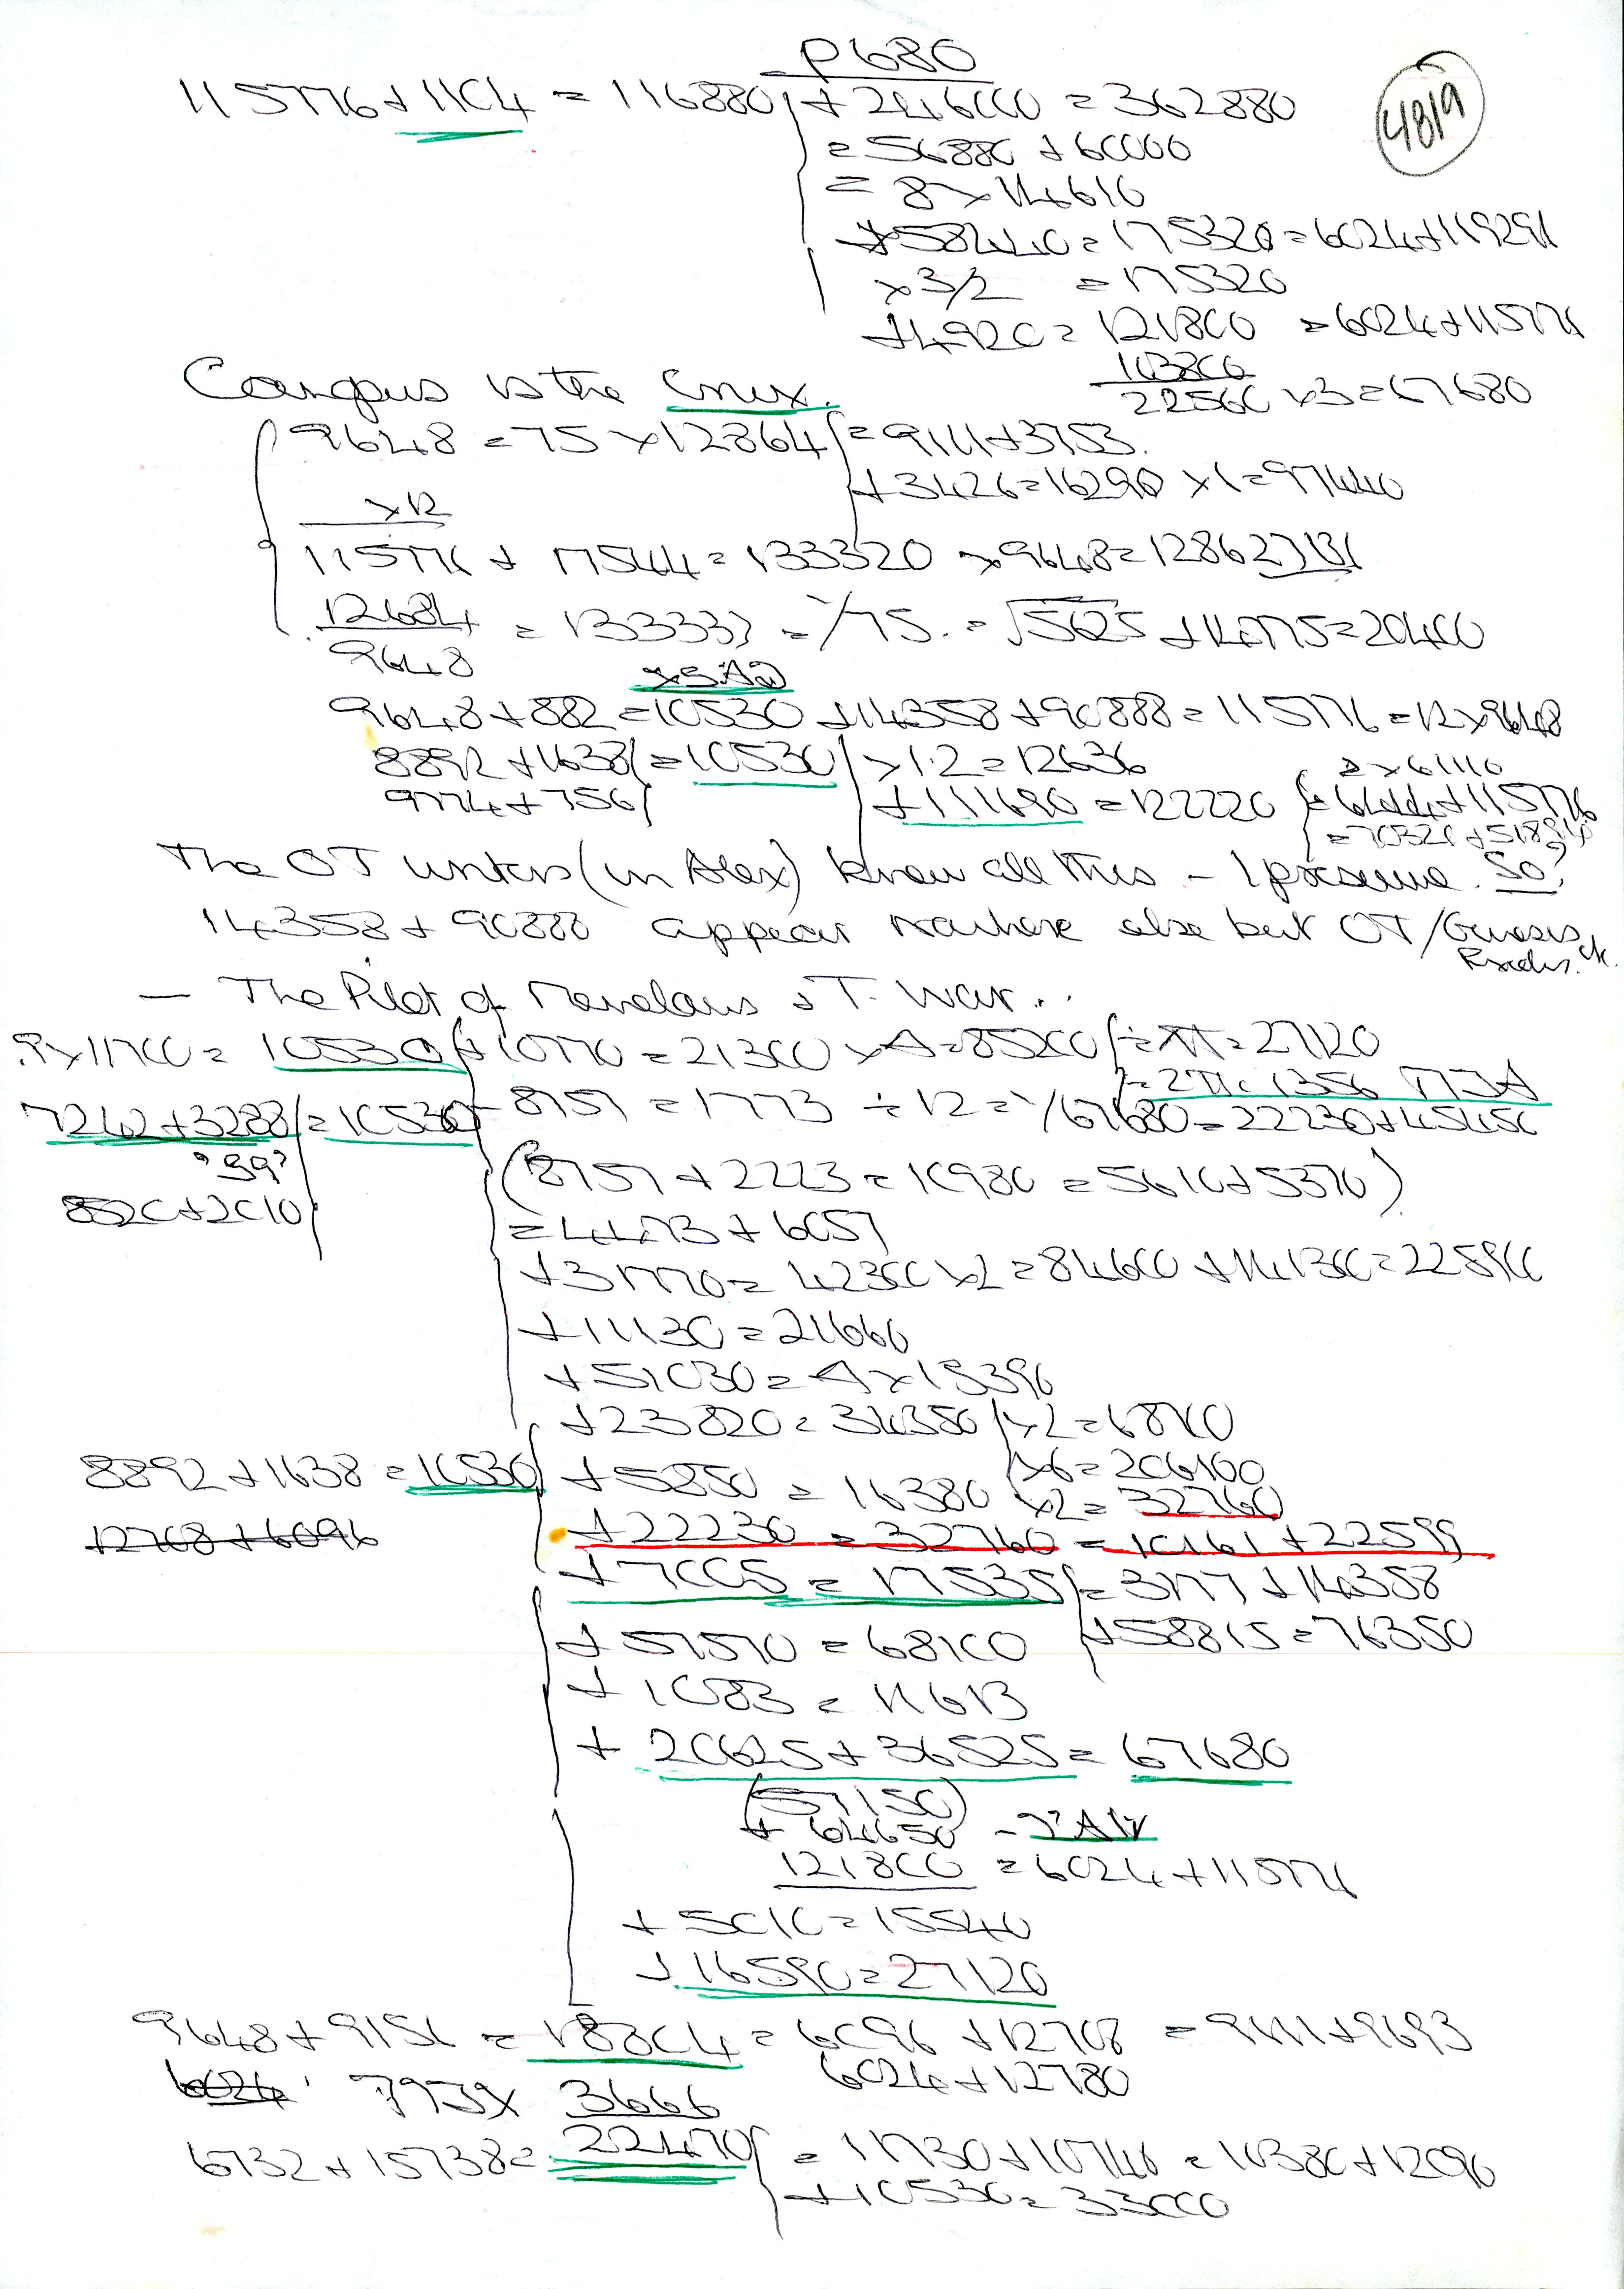 P680
4819
115776 + 1104 = 116880 + 246000 = 362880
= 56880 + 60000
= 8 × 14610
+ 58440 = 175320 = 6024 + 119291
× 3/2 = 175320
+ 4920 = 121800 = 6024 + 115776
103800
22560 × 3 = 67680
is the Crux.
9648 = 75 × 12864 = 9111 + 3753.
+ 3426 = 16290 × 6 = 97440
× 12
115776 + 17544 = 133320 × 9648 = 12862
12684 = 133333 = 1/75. = √5625 + 14775 = 20400
9648
9648 + 882 = 10530 + 14358 + 90888 = 115776 = 12 × 9648
8892 + 1638 = 10530 × 1.2 = 12636
2 × 61110
9774 + 756
+ 111690 = 122220 = 6444 + 115776
= 70326 + 51894
The OT writers (in Alex) knew all this – I presume. So?
14358 + 90888 appear nowhere else but OT/Genesis
Exodus. etc.
— The Pilot of Menelaus + T. War..
.9 × 11700 = 10530 + 10770 = 21300 × 4 = 85200 ÷ π = 27120
7242 + 3288 = 10530 - 8757 = 1773 ÷ 12 = 1/67680 = 22230 + 45450
'Sq?
8520 + 2010
(8757 + 2223 = 10980 = 5610 + 5370)
= 4473 + 6057
+ 31770 = 42300 × 2 = 84600 + 141300 = 225900
+ 11130 = 21660
+ 51030 = 4 × 15390
+ 23820 = 34350 × 2 = 68700
× 6 = 206100
8892 + 1638 = 10530 + 5850 = 16380 × 2 = 32760
12708 + 6096
+ 22230 = 32760 = 10161 + 22599
+ 7005 = 17535 = 3177 + 14358
+ 57570 = 68100 + 58815 = 76350
+ 1083 = 11613
+ 20625 + 36525 = 67680
(57150)
+ 64650
121800 = 6024 + 115776
+ 5010 = 15540
+ 16590 = 27120
9648 + 9156 = 18804 = 6096 + 12708 = 9111 + 9693
6024 7P3× 3666 6024 + 12780
6732 + 15738 = 22470 = 11730 + 10740 = 10380 + 12090
+ 10530 = 33000